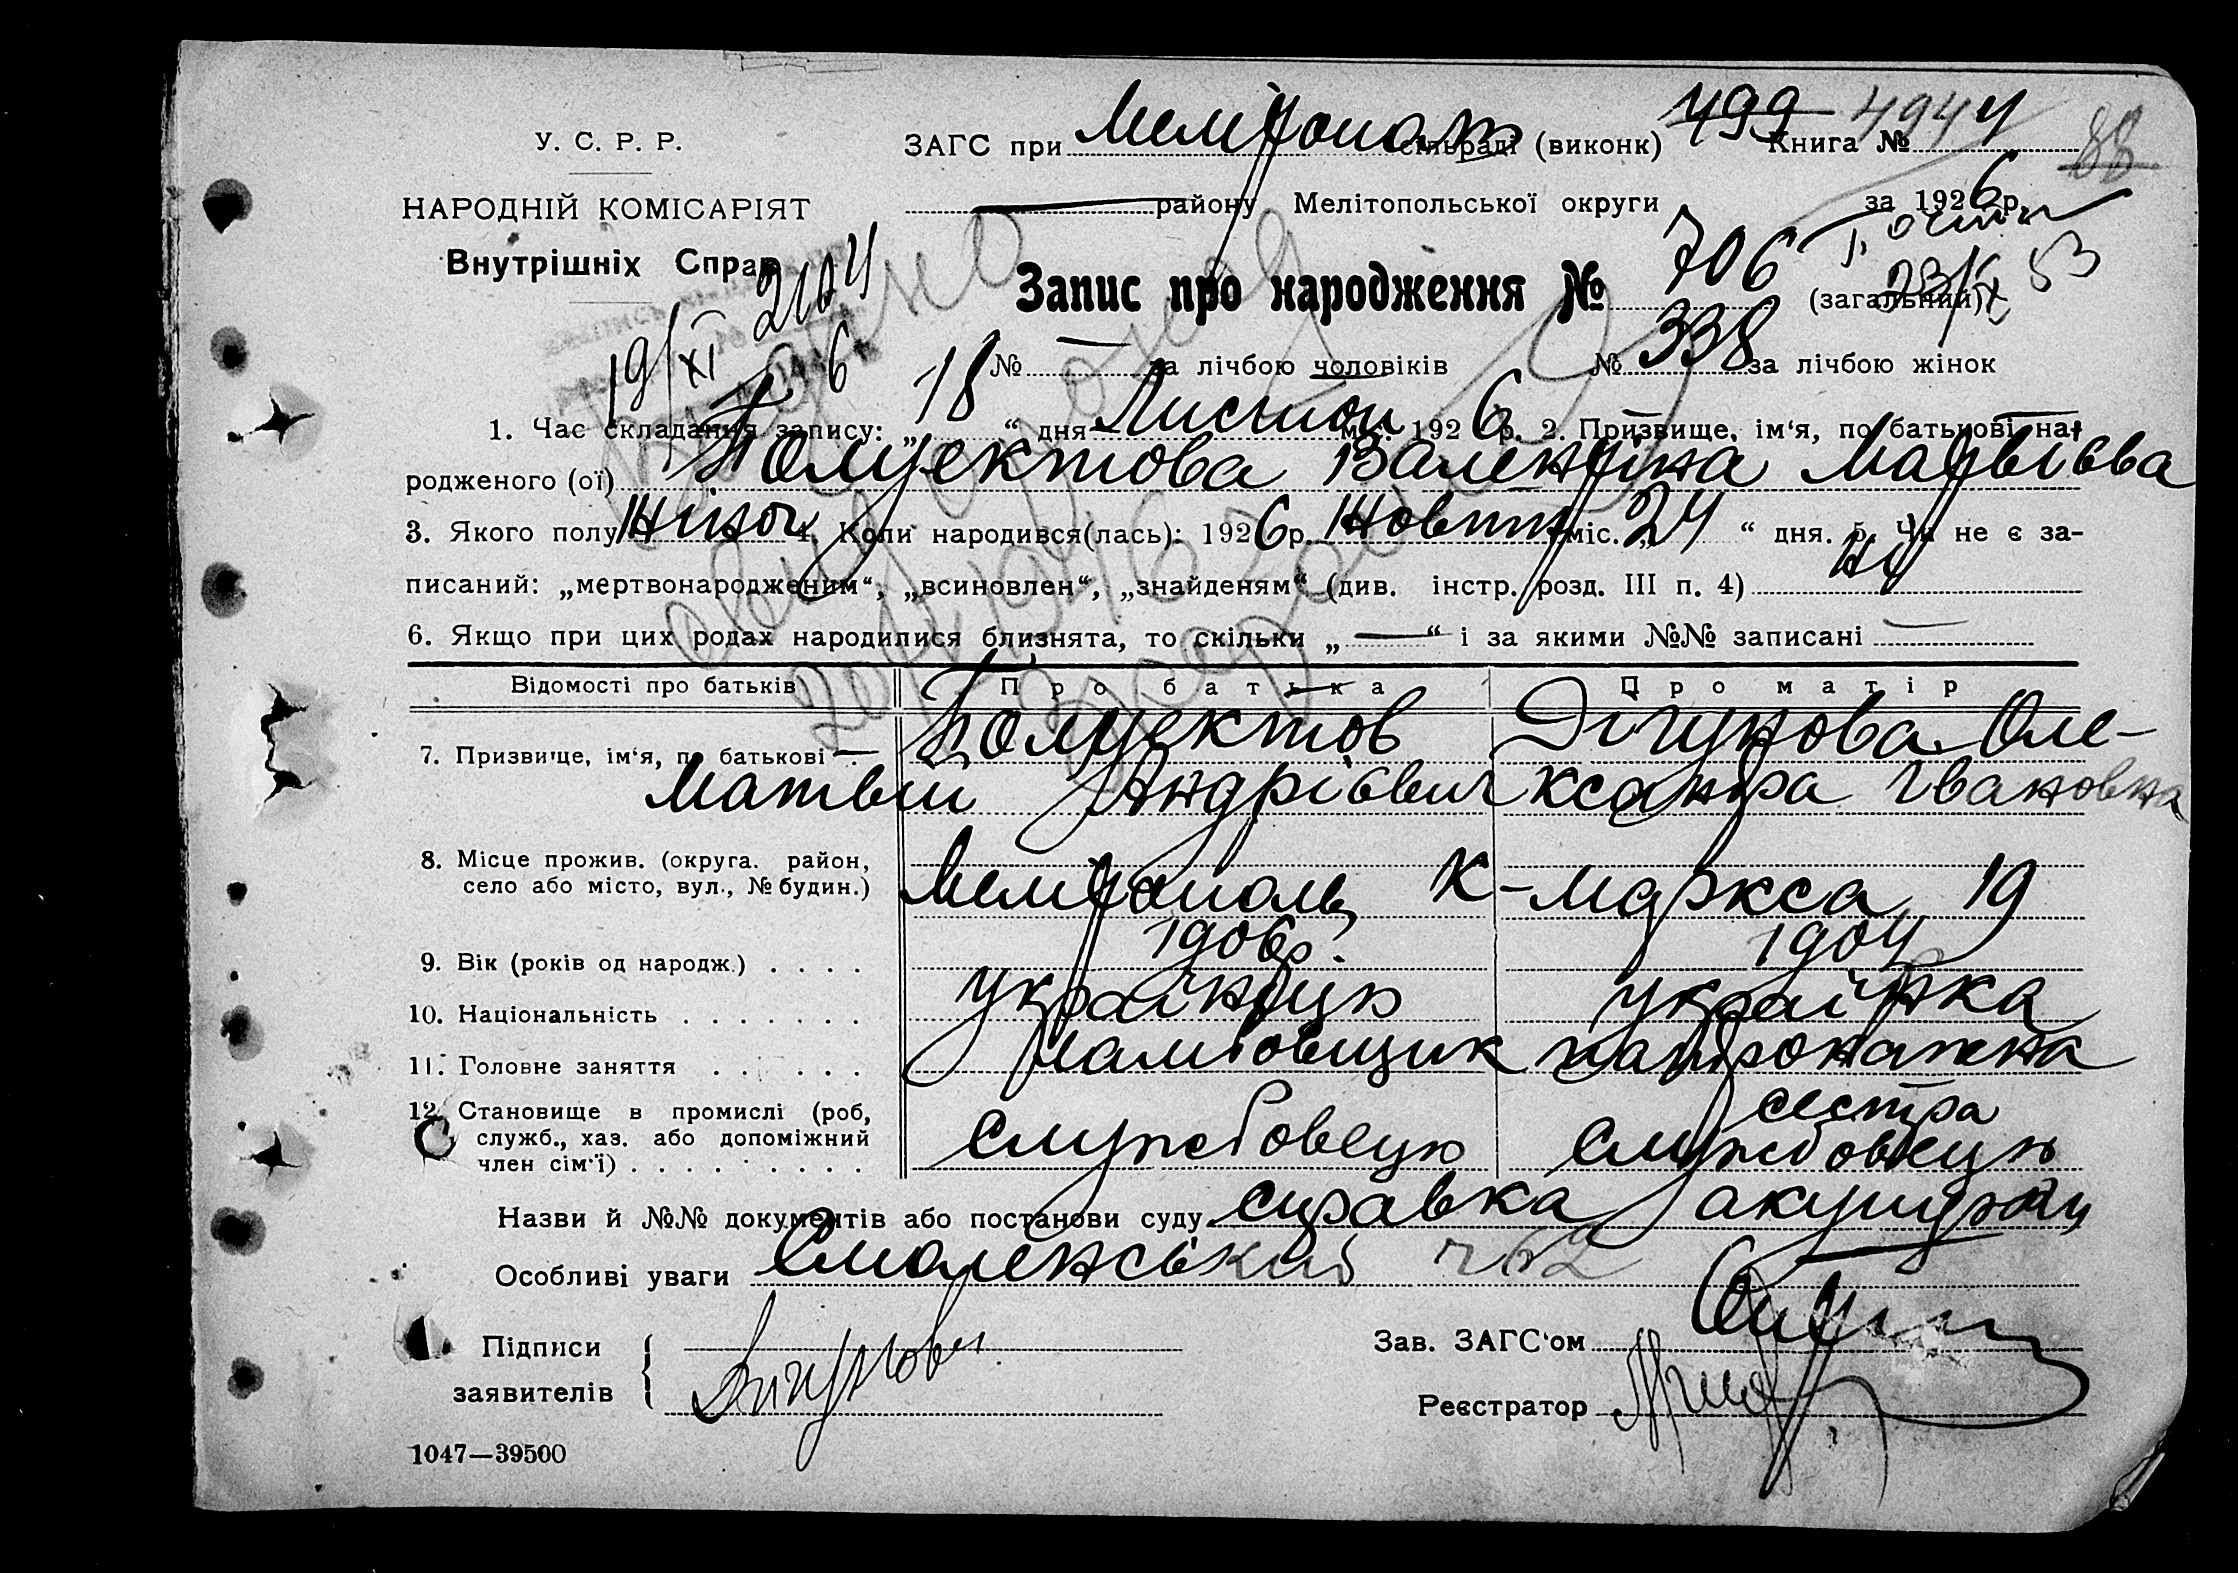 У. С. Р. Р.
НАРОДНІЙ КОМІСАРІЯТ
Внутрішніх Справ
ЗАГС при Меліtопол сільраді (виконк) 499 Книга № 4
88
району Мелітопольської округи за 1926 р.
Запис про народження № 706 (загальний)
23/X 53
19/XI 6
№ — за лічбою чоловіків № 338 за лічбою жінок
1. Час складання запису: „18“ дня Листоп міс. 1926 р. 2. Призвище, ім‘я, по батькові на-
родженого (ої) Полуектова Валентіна Матвієва
3. Якого полу Жіноч 4. Коли народився(лась): 1926 р. Жовтн міс. „24“ дня. 5. Чи не є за-
писаний: „мертвонародженим“, „всиновлен“, „знайденям“ (див. інстр. розд. III п. 4) ні
6. Якщо при цих родах народилися близнята, то скільки „—“ і за якими №№ записані —
Відомості про батьків Про батька Про матір
7. Призвище, ім‘я, по батькові Полуектов Дігунова Оле-
Матвій Андрієвич ксандра Івановна
8. Місце прожив. (округа. район,
село або місто, вул., № будин.) Мелітополь К-Маркса 19
9. Вік (років од народж.) 1906 р. 1904
10. Національність українець українка
11. Головне заняття патронажна
сестра
12. Становище в промислі (роб,
служб., хаз. або допоміжний
член сім‘ї) службовець службовець
Назви й №№ документів або постанови суду справка акушерки
Особливі уваги Смоленській
Підписи
заявителів
Зав. ЗАГС‘ом
Реєстратор
1047—39500